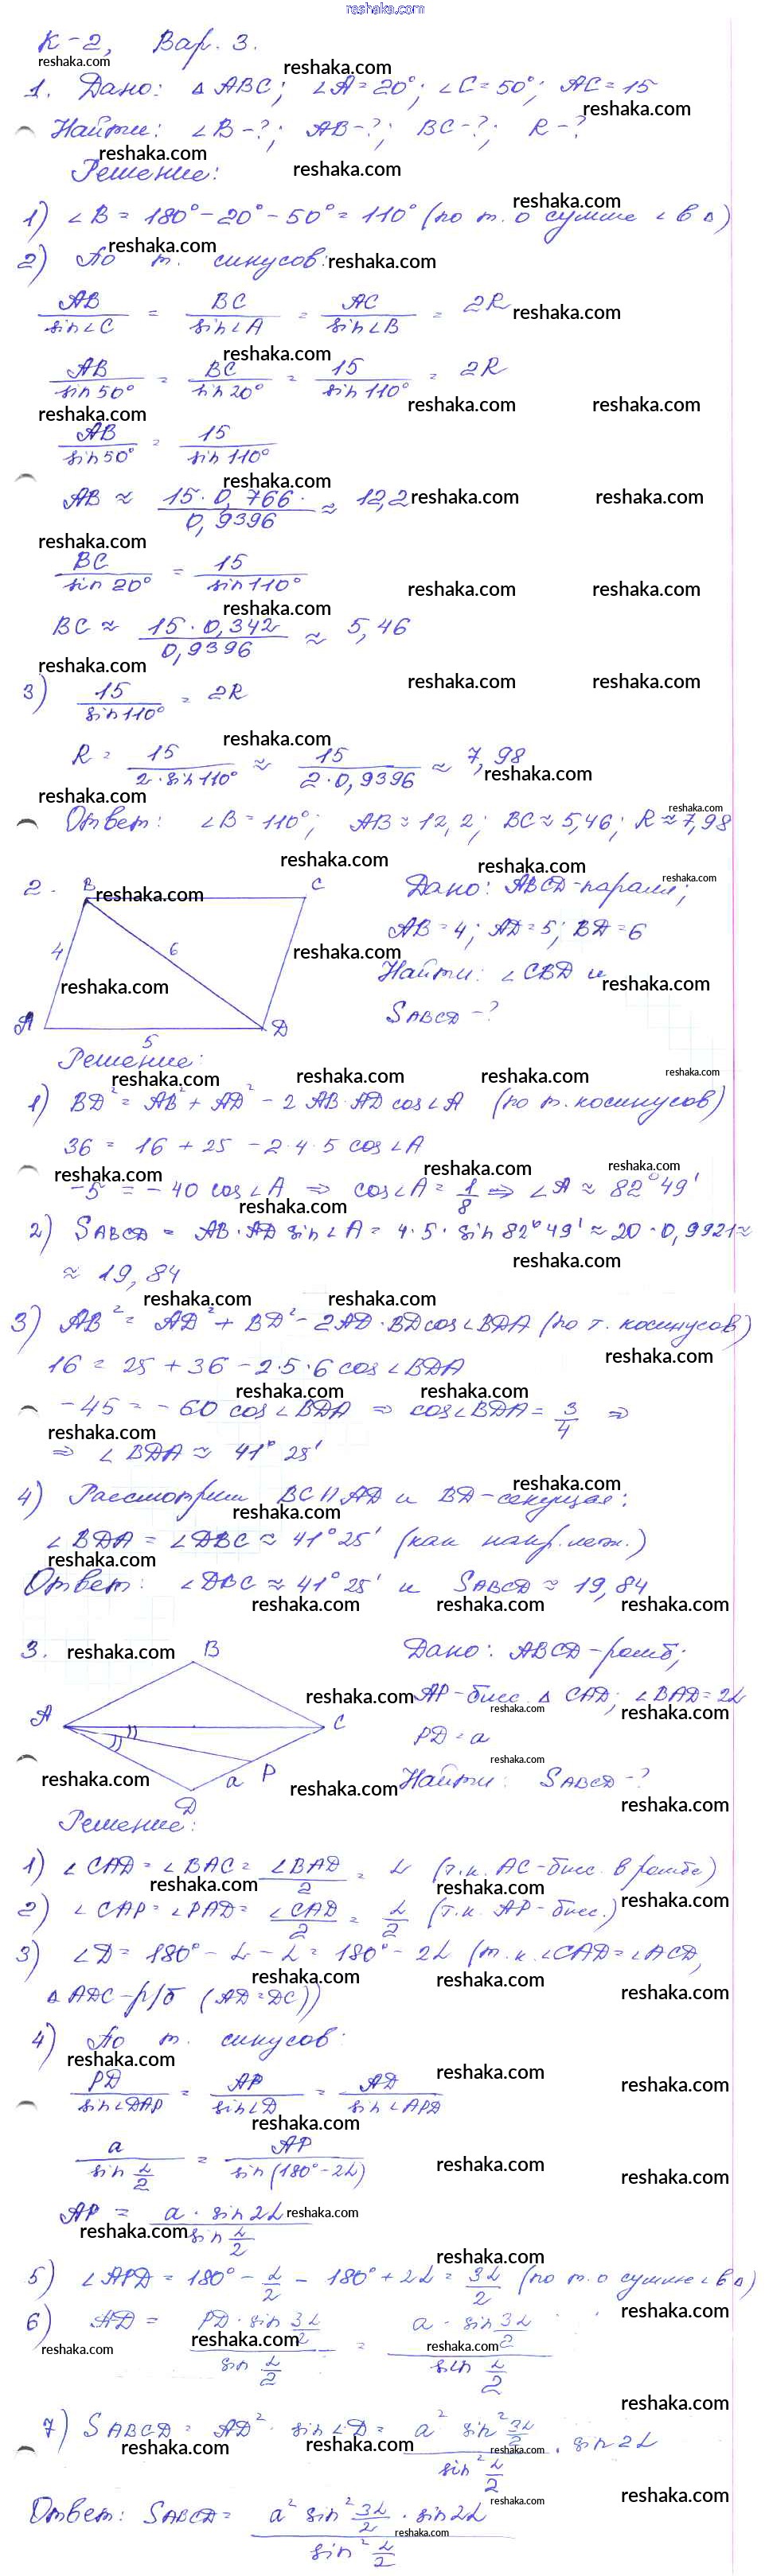 reshaka.com
К-2, Вар. 3.
1. Дано: △ABC; ∠A=20°; ∠C=50°; AC=15
Найти: ∠B-?; AB-?; BC-?; R-?
Решение:
1) ∠B = 180°-20°-50°=110° (по т. о сумме ∠ в △)
2) По т. синусов:
AB/sin∠C = BC/sin∠A = AC/sin∠B = 2R
AB/sin50° = BC/sin20° = 15/sin110° = 2R
AB/sin50° = 15/sin110°
AB ≈ 15·0,766·/0,9396 ≈ 12,2
BC/sin20° = 15/sin110°
BC ≈ 15·0,342/0,9396 ≈ 5,46
3) 15/sin110° = 2R
R = 15/2·sin110° ≈ 15/2·0,9396 ≈ 7,98
Ответ: ∠B=110°; AB≈12,2; BC≈5,46; R≈7,98
2. B C
4 6
A 5 D
Дано: ABCD-паралл;
AB=4; AD=5; BD=6
Найти: ∠CBD и
SABCD-?
Решение:
1) BD²=AB²+AD²-2AB·AD cos∠A (по т. косинусов)
36 = 16+25-2·4·5 cos∠A
-5 = -40 cos∠A ⇒ cos∠A=1/8 ⇒ ∠A ≈ 82°49'
2) SABCD = AB·AD sin∠A = 4·5·sin82°49' ≈ 20·0,9921≈
≈ 19,84
3) AB²=AD²+BD²-2AD·BDcos∠BDA (по т. косинусов)
16 = 25+36-2·5·6cos∠BDA
-45 = -60 cos∠BDA ⇒ cos∠BDA=3/4 ⇒
⇒ ∠BDA ≈ 41°25'
4) Рассмотрим BC||AD и BD-секущая:
∠BDA=∠DBC≈41°25' (как накр. леж.)
Ответ: ∠DBC≈41°25' и SABCD≈19,84
3. B
A C
a P
D
Дано: ABCD-ромб;
AP-бисс. △CAD; ∠BAD=2α
PD=a
Найти: SABCD-?
Решение:
1) ∠CAD=∠BAC=∠BAD/2=α (т.к. AC-бисс. в ромбе)
2) ∠CAP=∠PAD=∠CAD/2=α/2 (т.к. AP-бисс.)
3) ∠D=180°-α-α=180°-2α (т.к. ∠CAD=∠ACD,
△ADC-р/б (AD=DC))
4) По т. синусов:
PD/sin∠DAP = AP/sin∠D = AD/sin∠APD
a/sin α/2 = AP/sin(180°-2α)
AP = a·sin2α/sin α/2
5) ∠APD=180°-α/2-180°+2α=3α/2 (по т. о сумме ∠ в △)
6) AD = PD·sin 3α/2/sin α/2 = a·sin 3α/2/sin α/2
7) SABCD=AD²·sin∠D=a² sin² 3α/2/sin² α/2·sin2α
Ответ: SABCD=a² sin² 3α/2·sin2α/sin² α/2